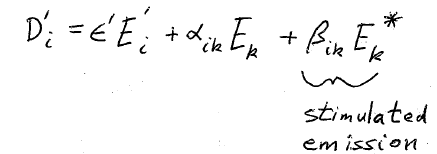 D'ᵢ = ϵ'E'ᵢ + αᵢₖ Eₖ + βᵢₖ Eₖ*
stimulated
emission